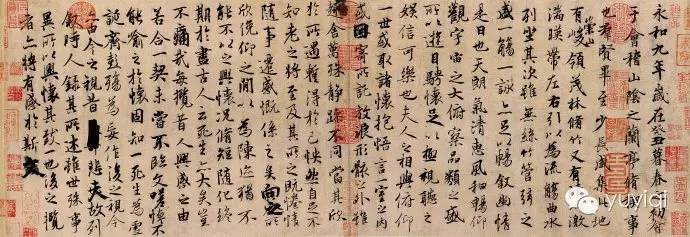 永和九年歲在癸丑暮春之初會
于會稽山陰之蘭亭脩禊事
也群賢畢至少長咸集此地
有崇山峻領茂林脩竹又有清流激
湍暎帶左右引以為流觴曲水
列坐其次雖無絲竹管弦之
盛一觴一詠亦足以暢敘幽情
是日也天朗氣清惠風和暢仰
觀宇宙之大俯察品類之盛
所以遊目騁懷足以極視聽之
娛信可樂也夫人之相與俯仰
一世或取諸懷抱悟言一室之內
或因寄所託放浪形骸之外雖
趣舍萬殊靜躁不同當其欣
於所遇暫得於己怏然自足不
知老之將至及其所之既惓情
隨事遷感慨係之矣向之所
欣俛仰之閒以為陳迹猶不
能不以之興懷況脩短隨化終
期於盡古人云死生亦大矣豈
不痛哉每攬昔人興感之由
若合一契未嘗不臨文嗟悼不
能喻之於懷固知一死生為虛
誕齊彭殤為妄作後之視今
亦由今之視昔悲夫故列
敘時人錄其所述雖世殊事
異所以興懷其致一也後之攬
者亦將有感於斯文
yuyiqi